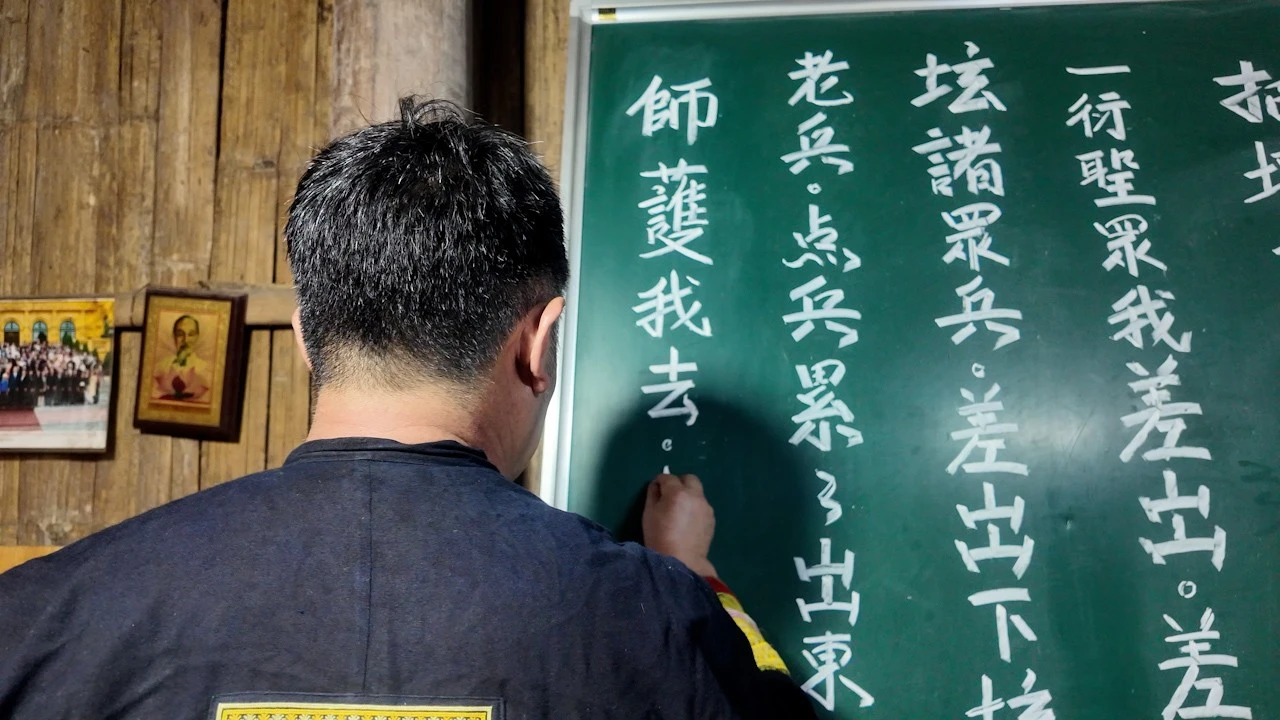 一衍聖眾我差出。差
坛諸眾兵。差出下坛
老兵。点兵累〻出東
師護我去。